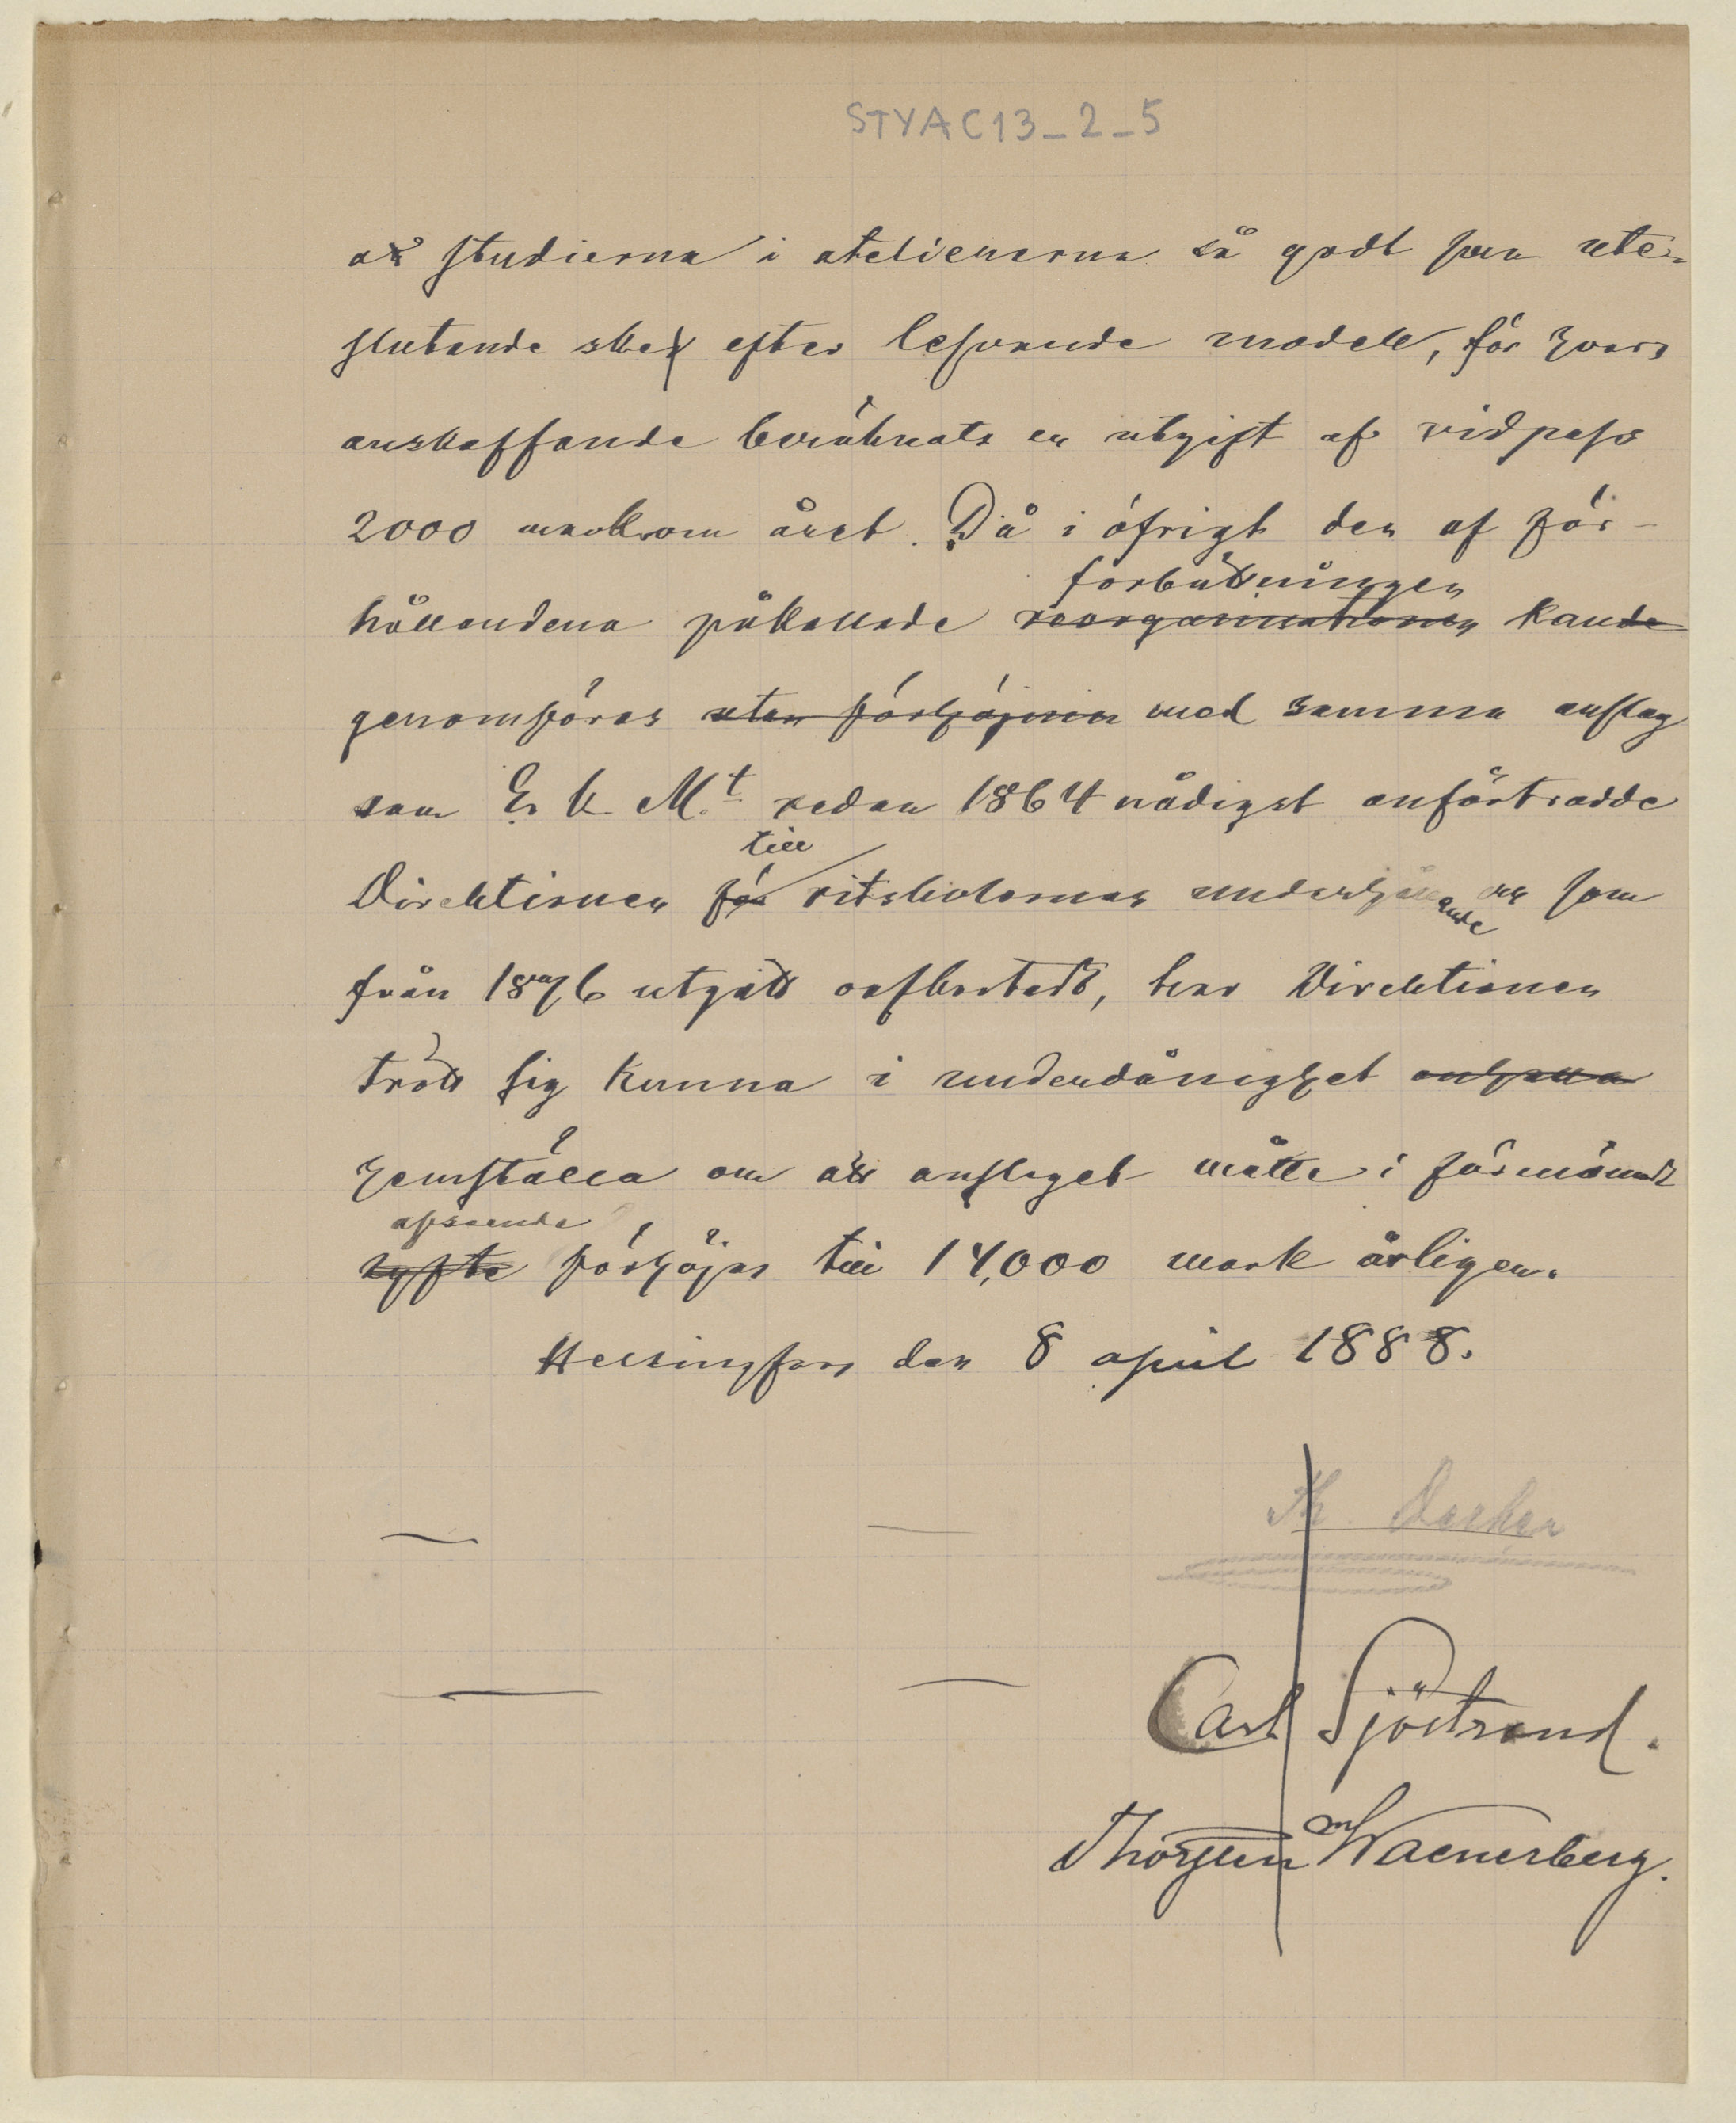 STYAC13_2_5
att studierna i atelierema så godt som ute-
slutande sker efter lefvande modell, för hvars
anskaffande beräknats en utgift af vidpass
2000 mark om året. Då i öfrigt den af för-
förbättringen
hållandena påkallade reorganisationen kande
genomföras utan förhöjning med samma anslag
som E. K. M:t redan 1864 nådigst anförtrodde
till
Direktionen för ritskolornas underhållande som
från 1876 utgått oafkortadt, har Direktionen
trott sig kunna i underdånighet anhålla
hemställa om att anslaget måtte i förmäldt
afseende
syfte förhöjas till 14,000 mark årligen.
Helsingfors den 8 april 1888.
Th. Decker
Carl Sjöstrand.
Thorsten Waenerberg.